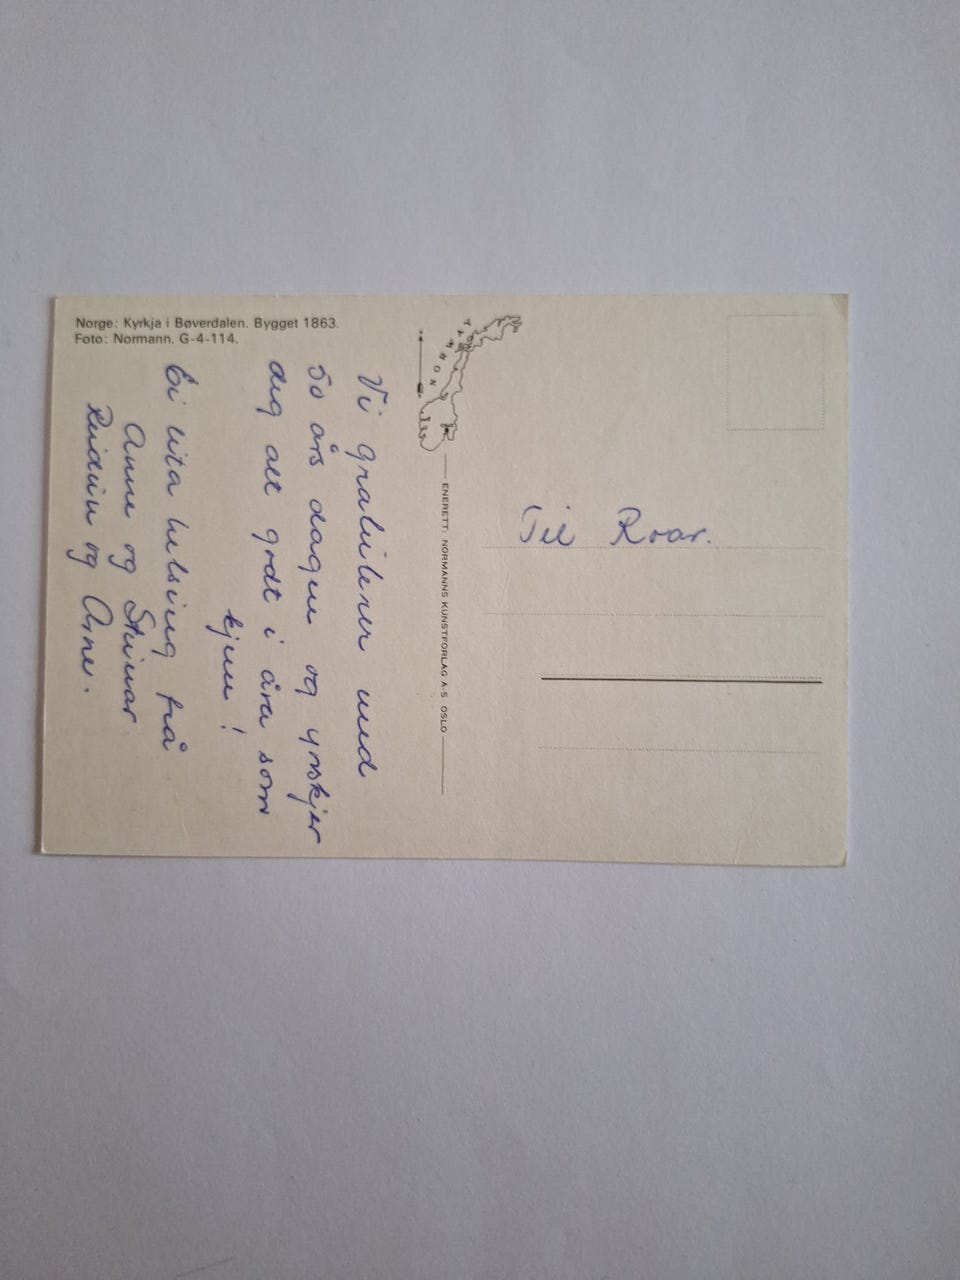 Norge: Kyrkja i Bøverdalen. Bygget 1863.
Foto: Normann. G-4-114.
Vi gratulerer med
50 års dagen og ynskjer
deg alt godt i åra som
kjem!
Ei lita helsing frå
Anne og Steinar
Reidun og Arne.
NORWAY
ENERETT: NORMANNS KUNSTFORLAG A-S OSLO
Til Roar.